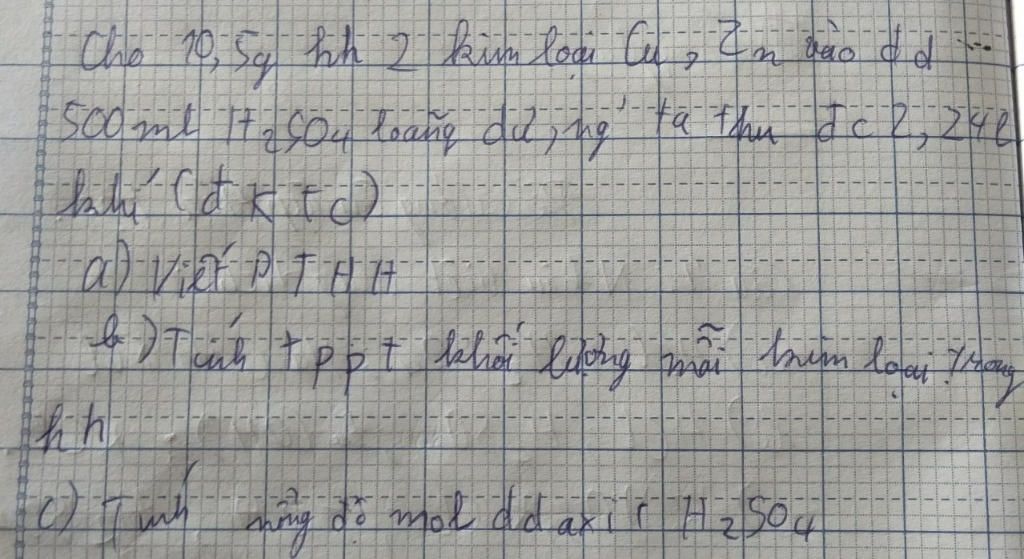 Cho 10,5g hh 2 kim loại Cu, Zn vào dd
500ml H₂SO₄ loãng dư, ng' ta thu đc 2,24l
khí (đKTC)
a) Viết PTHH
b) Tính tppt khối lượng mỗi kim loại trong
hh
c) Tính nồng độ mol dd axit H₂SO₄